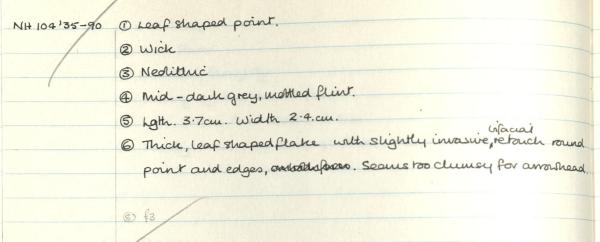 NH 104'35-90 ① Leaf shaped point.
② Wick
③ Neolithic
④ Mid-dark grey, mottled flint.
⑤ Lgth. 3.7cm. Width 2.4.cm.
⑥ Thick, leaf shaped flake with slightly invasive, bifacial retouch round
point and edges, . Seems too clumsy for arrowhead.
⑧ f3